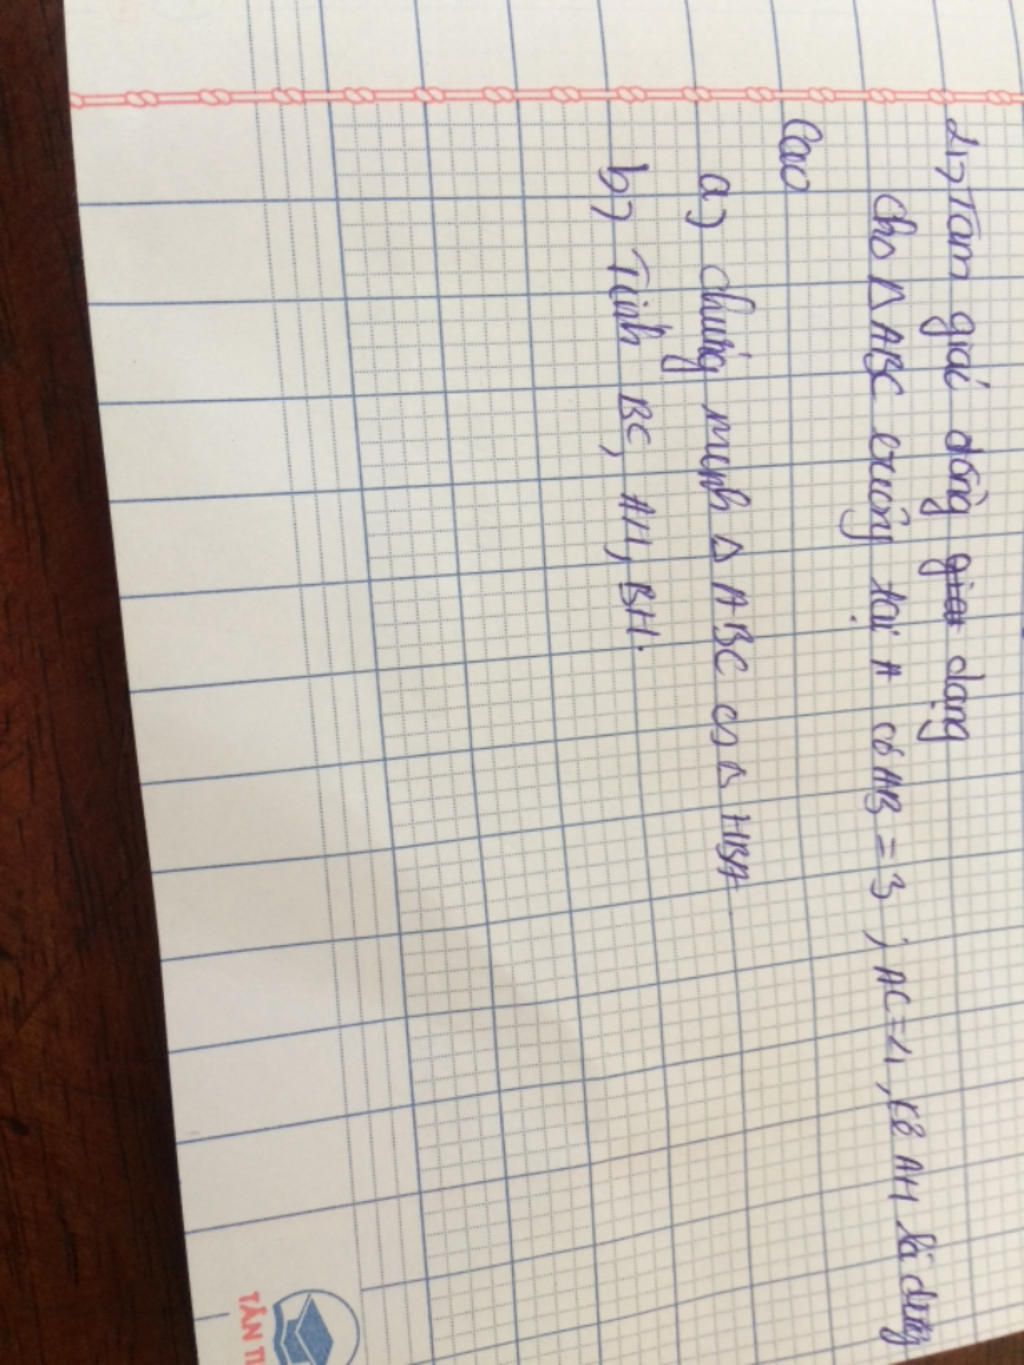 4, Tam giác đồng dạng
Cho Δ ABC vuông tại A có AB = 3 ; AC = 4, kẻ AH là đường
Cao
a) chứng minh Δ ABC ∽ Δ HBA
b) Tính BC, AH, BH.
TÂN TI